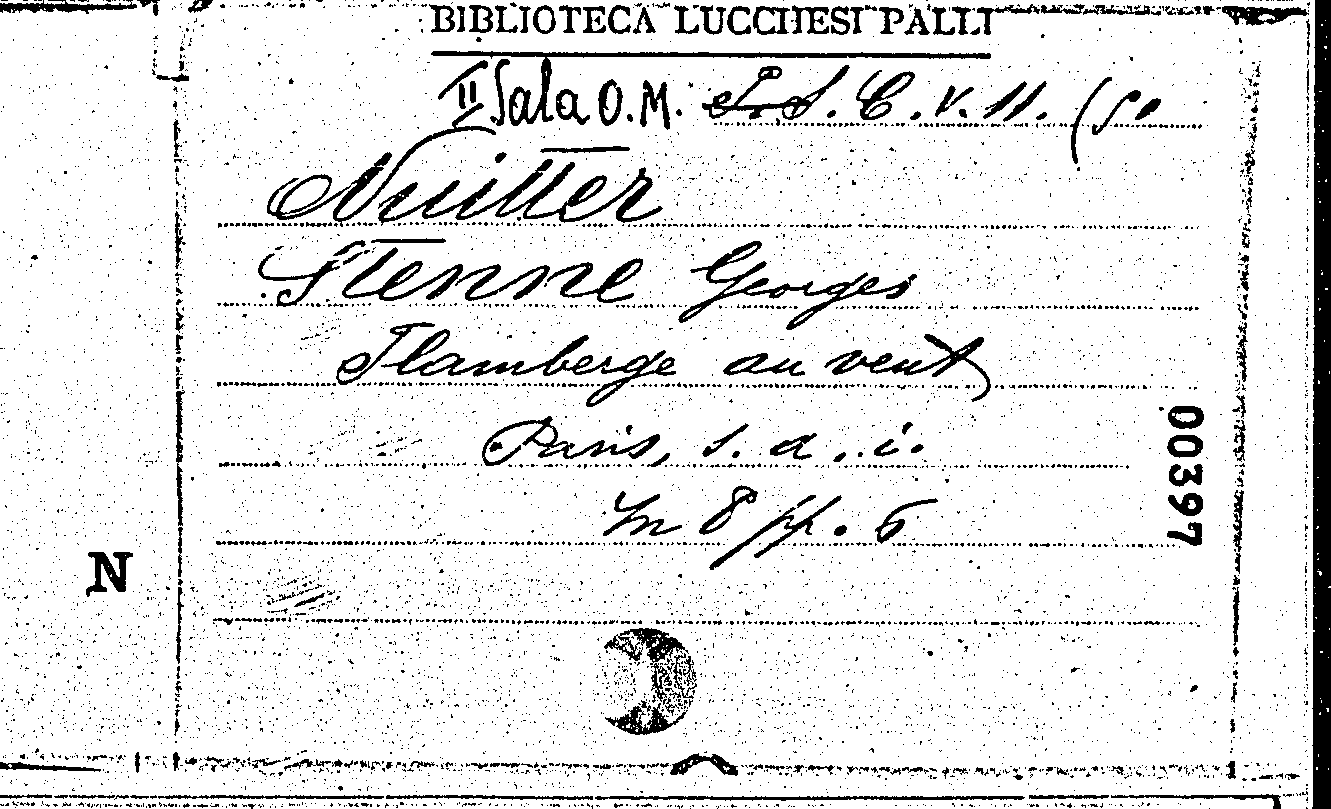 BIBLIOTECA LUCCHESI PALLI
II Sala O.M. P.S. C. V. 11. (5o
Nuitter
Stenne Georges
Flamberge au vent
Paris, s. a. i.
In 8 pp. 6
00397
N